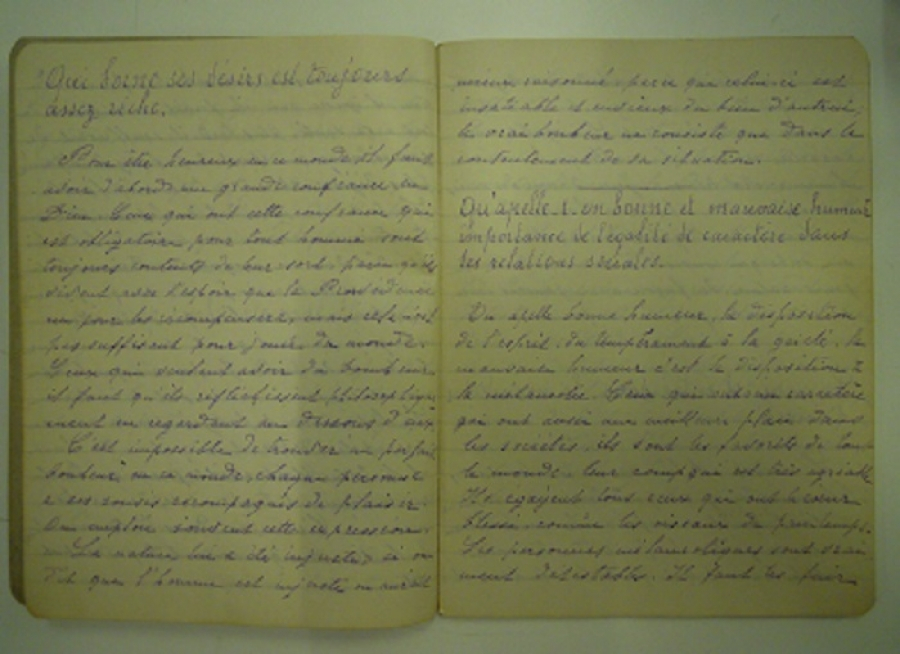 Qui borne ses désirs est toujours
assez riche.
Pour être heureux en ce monde il faut
avoir d'abord une grande confiance en
Dieu. Ceux qui ont cette confiance qui
est obligatoire pour tout homme sont
toujours contents de leur sort, parce qu'ils
vivent avec l'espoir que la Providence
pour les récompensera, mais cela n'est
pas suffisant pour jouir du monde.
Ceux qui veulent avoir du bonheur
il faut qu'ils réfléchissent philosophique
ment en regardant au dessous d'eux
C'est impossible de trouver un parfait
bonheur en ce monde, chaque personne
a ses soucis accompagnés de plaisir.
On emploie souvent cette expression.
La nature injuste, si on
dit que l'homme est injuste on aurait
mieux raisonné, parce que celui-ci est
insatiable et envieux du bien d'autrui,
le vrai bonheur ne consiste que dans le
contentement de sa situation.
Qu'apelle-t-on bonne et mauvaise humeur
importance de l'égalité de caractère dans
les relations sociales.
On apelle bonne humeur, la disposition
de l'esprit, du tempérament à la gaieté, la
mauvaise humeur c'est la disposition à
la mélancolie. Ceux qui ont un caractère
gai ont aussi une meilleure place dans
les sociétés, ils sont les favoris de tout
le monde, leur compagni est très agréable
Ils égayent tous ceux qui ont le cœur
blessé, comme les oiseaux du printemps.
Les personnes mélancoliques sont vrai
ment détestables. Il faut les fuir